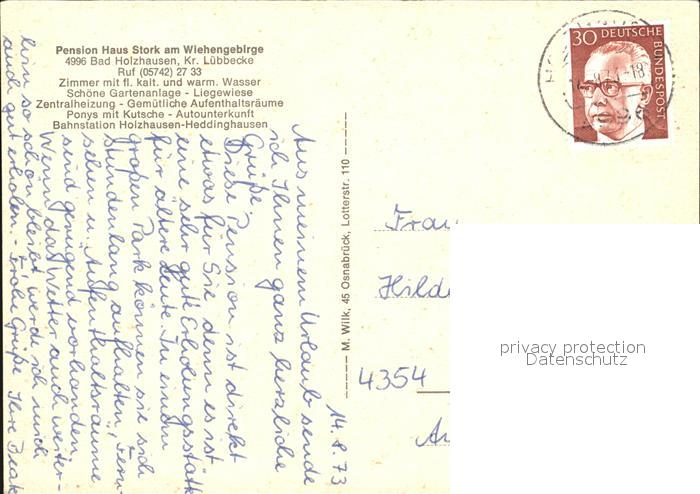 Pension Haus Stork am Wiehengebirge
4996 Bad Holzhausen, Kr. Lübbecke
Ruf (05742) 27 33
Zimmer mit fl. kalt. und warm. Wasser
Schöne Gartenanlage - Liegewiese
Zentralheizung - Gemütliche Aufenthaltsräume
Ponys mit Kutsche - Autounterkunft
Bahnstation Holzhausen-Heddinghausen
14.8.73
Aus meinem Urlaub sende
ich Ihnen ganz herzliche
Grüße.
Diese Pension ist direkt
etwas für Sie, denn es ist
eine sehr gute Erholungsstätte
für ältere Leute. In einem
großen Park können sie sich
stundenlang aufhalten, Fern-
sehen u. Aufenthaltsräume
sind genügend vorhanden.
Wenn das Wetter auch weiter-
hin so schön bleibt, werde ich mich
auch gut erholen. - Frohe Grüße Ihre
M. Wilk, 45 Osnabrück, Lotterstr. 110
30 DEUTSCHE BUNDESPOST
Frau
Hilde
4354
privacy protection
Datenschutz